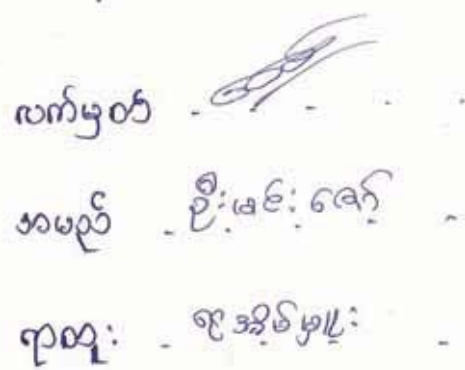 လက်မှတ် -
အမည် - ဦးမင်းဇော်
ရာထူး - ရာအိမ်မှူး